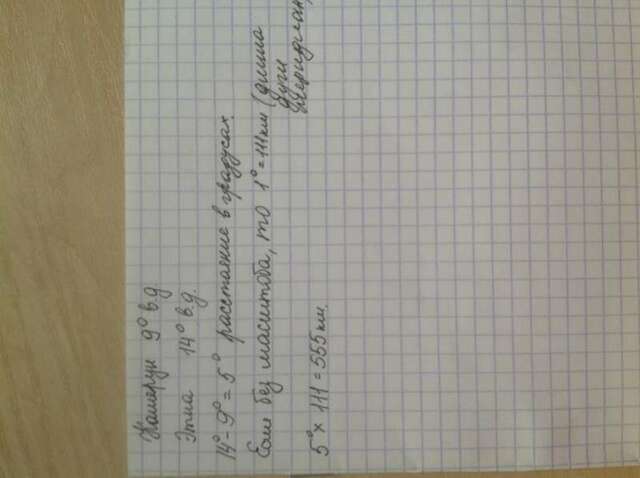 Камерун 9° в.д
Этна 14° в.д.
14°-9°=5° расстояние в градусах.
Если без масштаба, то 1°=111км (длина
дуги
меридиана)
5°х111=555км.